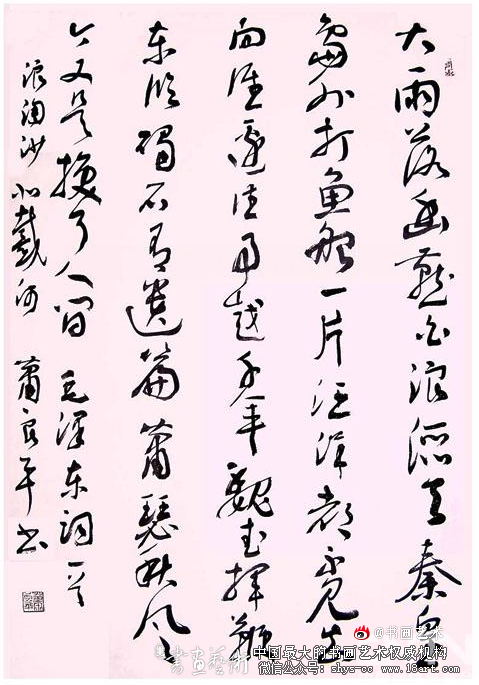 大雨落幽燕白浪滔天秦皇
岛外打鱼船一片汪洋都不见知
向谁边往事越千年魏武揮鞭
东临碣石有遺篇蕭瑟秋风
今又是换了人间 毛泽东词一首
浪淘沙北戴河 蕭良平书
@书画艺术
書畫藝術
中国最大的书画艺术权威机构
微信公众号：shys-cc www.18art.com